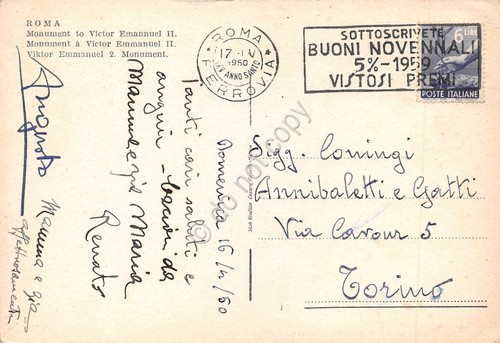 ROMA
Monument to Victor Emannuel II.
Monument à Victor Emmanuel II.
Viktor Emmanuel 2. Monument.
ROMA
17·IV
1950
XXV ANNO SANTO
FERROVIA
SOTTOSCRIVETE
BUONI NOVENNALI
5%-1959
VISTOSI PREMI
6 LIRE
POSTE ITALIANE
Domenica 16/4/50
Tanti cari saluti e
auguri - bacioni da
Mamma e zia Maria
Renato
Augusto
Mamma e zia
affettuosamente
Sigg. Coniugi
Annibaletti e Gatti
Via Cavour 5
Torino
do not copy